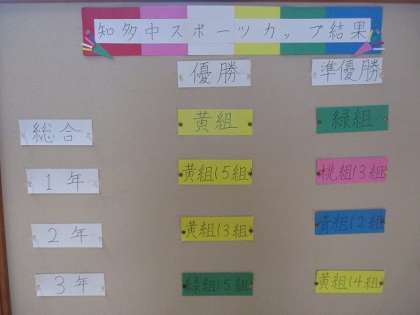 知多中スポーツカップ結果
優勝 準優勝
総合 黄組 緑組
1年 黄組(5組) 桃組(3組)
2年 黄組(3組) 青組(2組)
3年 緑組(5組) 黄組(4組)